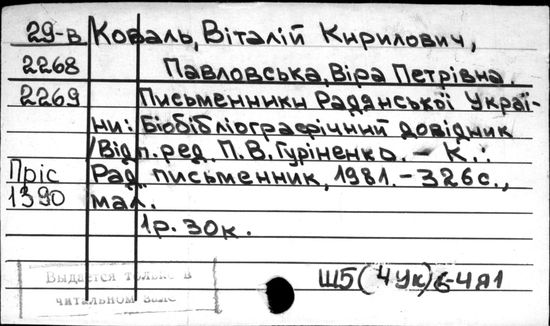 29-в Коваль, Віталій Кирилович,
2268 Павловська, Віра Петрівна.
2269 Письменники Радянської Украї-
ни: Біобібліографічний довідник
/Відп. ред. П.В. Гуріненко. – К.:
Пріс Рад. письменник, 1981. – 326 с.,
1390 мал.
1р. 30к.
Ш5(4Ук)6-4я1
Выдается только в
читальном зале